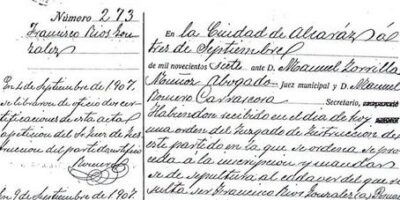 Número 273
Francisco Rios Gon-
zalez
En 4 de Septiembre de 1907.
se libraron de oficio dos cer-
tificaciones de esta acta
a peticion del Sr Juez de Ins-
truccion del partido certifico
Romero
En 9 de Septiembre de 1907.
En la Ciudad de Alcaráz á
tres de Septiembre
de mil novecientos siete ante D. Manuel Zorrilla
Muñoz Abogado juez municipal y D. Manuel
Romero Carrascosa
Secretario,
Habiendose recibido en el dia de hoy
una orden del Juzgado de Instruccion de
este partido en la que se ordena se pro-
ceda á la inscripcion y mandar
se de sepultura al cadaver del que re-
sulta ser Francisco Rios Gonzalez